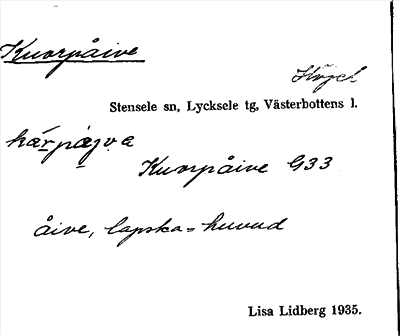 Kuorpåive
Stensele sn, Lycksele tg, Västerbottens l.
Kuorpåive G33
åive, lapska = huvud
Lisa Lidberg 1935.